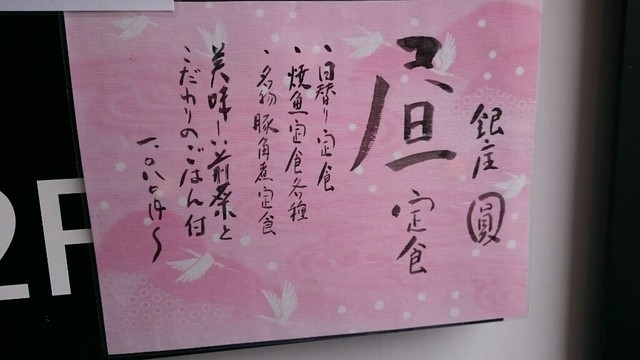 銀座 圓
昼定食
・日替り定食
・焼魚定食各種
・名物豚角煮定食
美味しい前菜と
こだわりのごはん付
一〇八〇円〜
2F